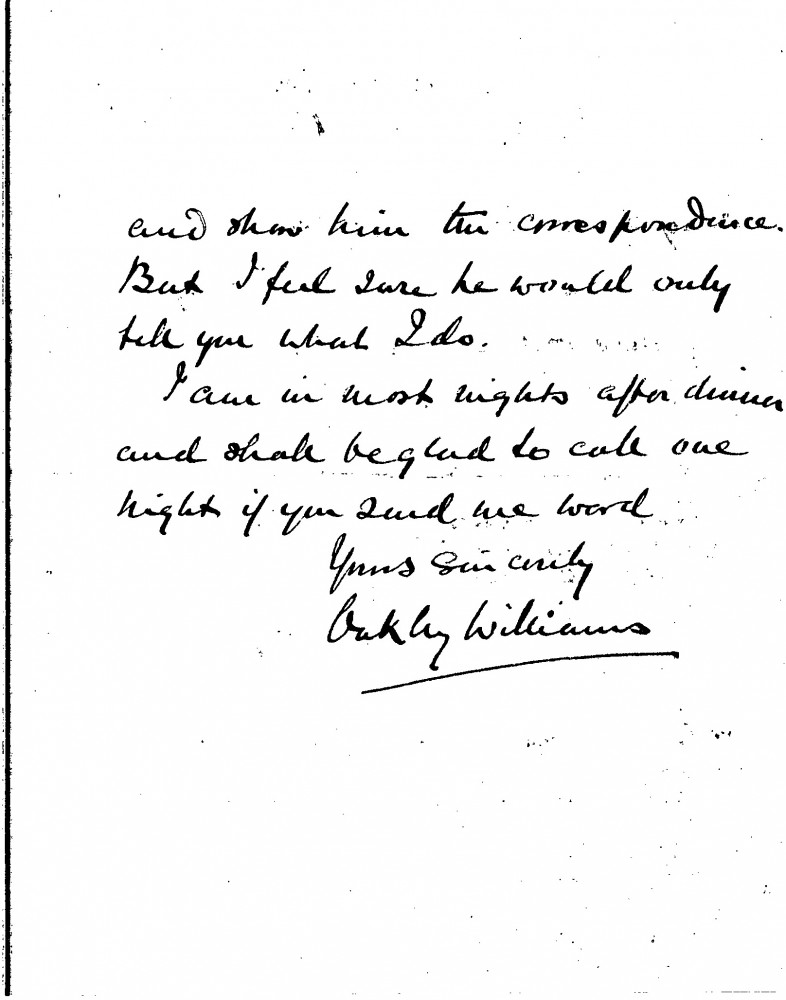 and show him the correspondence.
But I feel sure he would only
tell you what I do.
I am in most nights after dinner
and shall be glad to call one
night if you send me word
Yours sincerely
Oakley Williams